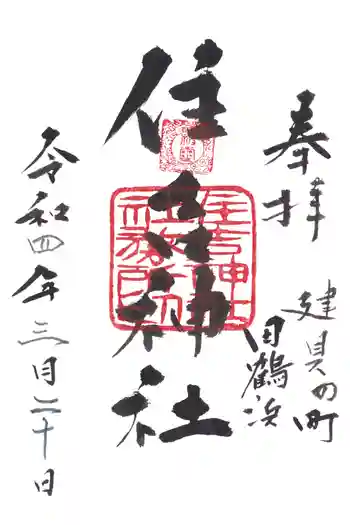 奉拝
建具の町
田鶴浜
住吉神社
住吉神社社務所印
令和四年三月二十日